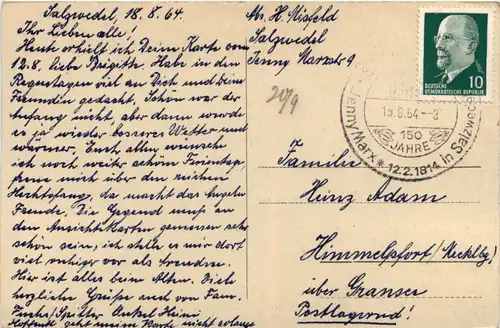 Salzwedel, 18.8.64.
Ihr Lieben alle!
Heute erhielt ich Deine Karte vom
12.8. liebe Brigitte. Habe in den
Regentagen viel an Dich und Deine
Freundin gedacht. Schön war der
Anfang nicht, aber dann wurde
es ja wieder besseres Wetter und
wärmer. Euch allen wünsche
ich noch weiter schöne Ferientage,
freue mich über den reichen
Hechtfang, da macht das Angeln
Freude. Die Gegend muß an
den Ansichtskarten gemessen sehr
schön sein, ich stelle es mir dort
viel ruhiger vor als
Hier ist alles beim Alten. Viele
herzliche Grüße auch von Fam.
Fuchs, Onkel Heini
geht meine Karte nicht solange
Abs. H. Nisfeld
Salzwedel
Jenny Marxstr 9
20/9
Familie
Heinz Adam
Himmelpfort/Mecklbg
über Gransee
Postlagernd!
DEUTSCHE
DEMOKRATISCHE REPUBLIK
10
19.8.64-8
150
JAHRE
Jenny Marx * 12.2.1814 in Salzwedel